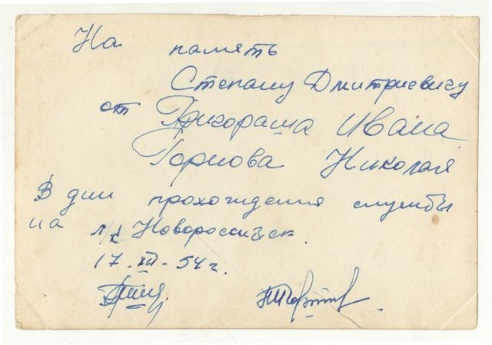 На память
Степану Дмитриевичу
от Григораша Ивана
Горнова Николая
В дни прохождения службы
на л/к Новороссийск.
17.XII-54 г.